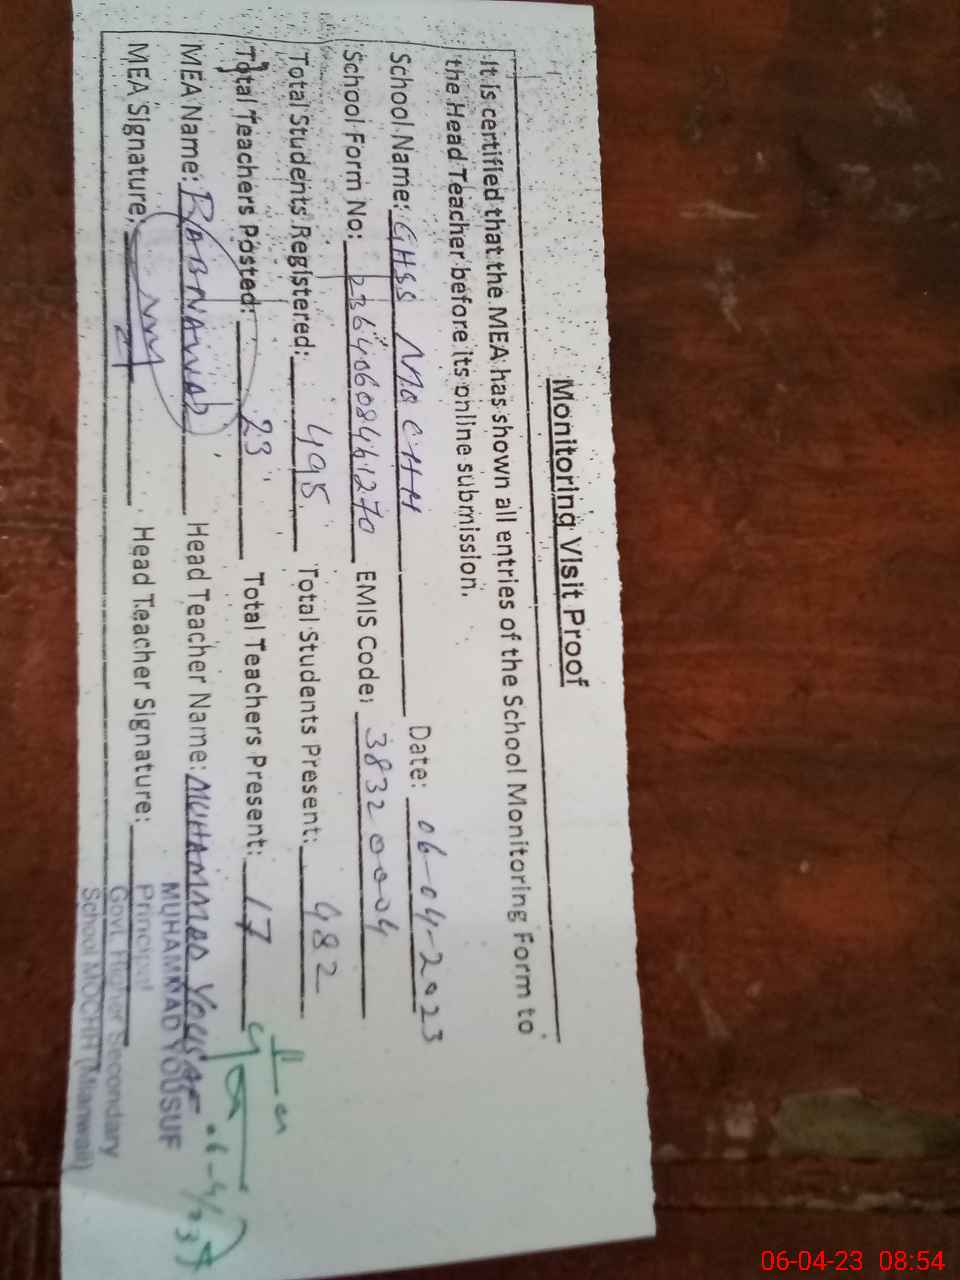 Monitoring Visit Proof
It is certified that the MEA has shown all entries of the School Monitoring Form to
the Head Teacher before its online submission.
School Name: GHSS MOCHH Date: 06-04-2023
School Form No: EMIS Code: 38320004
Total Students Registered: 495 Total Students Present: 482
Total Teachers Posted: 23 Total Teachers Present: 17
MEA Name: RABNAWAZ Head Teacher Name: MUHAMMAD YOUSAF
MEA Signature: Head Teacher Signature:
MUHAMMAD YOUSUF
Principal
Govt. Higher Secondary
School MOCHH (Mianwali)
06-04-23 08:54